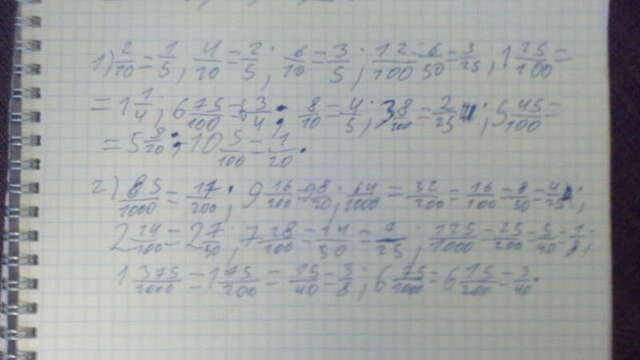 1) 2/10 = 1/5; 4/10 = 2/5; 6/10 = 3/5; 12/100 = 6/50 = 3/25; 1 25/100 =
= 1 1/4; 6 75/100 = 6 3/4; 8/10 = 4/5; 3 8/100 = 2/25; 5 45/100 =
= 5 9/20; 10 5/100 = 1/20.
2) 85/1000 = 17/200; 9 16/100 = 8/50; 64/1000 = 32/200 = 16/100 = 8/50 = 4/25;
2 14/100 = 2 7/50; 7 28/100 = 14/50 = 7/25; 125/1000 = 25/200 = 5/40 = 1/8;
1 375/1000 = 1 75/200 = 15/40 = 3/8; 6 75/1000 = 6 15/200 = 3/40.